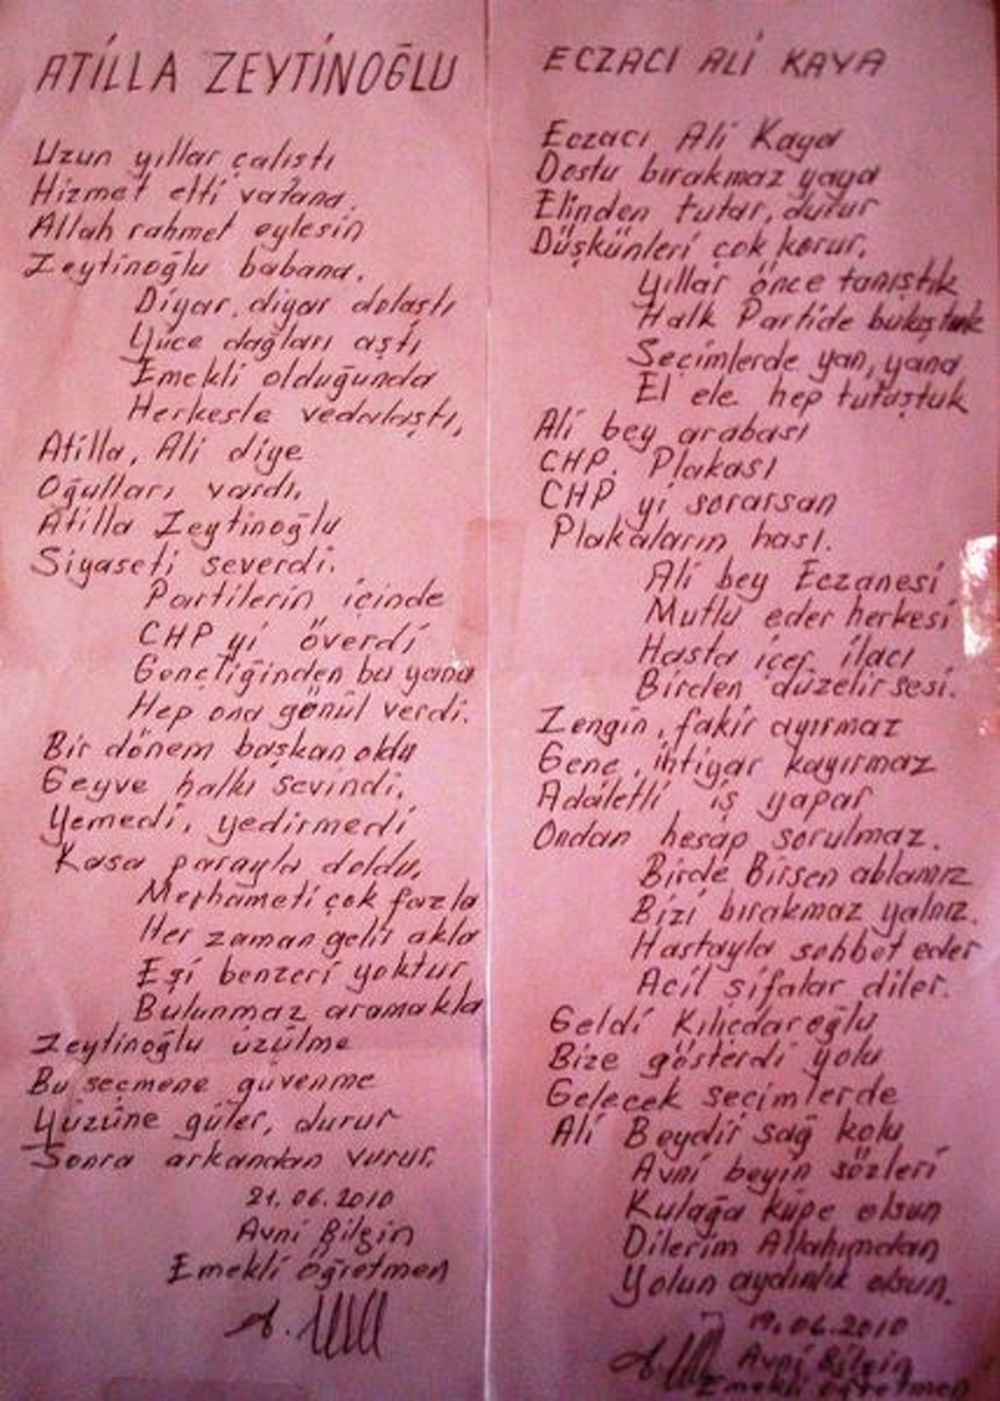 ATİLLA ZEYTİNOĞLU
Uzun yıllar çalıştı
Hizmet etti vatana.
Allah rahmet eylesin
Zeytinoğlu babana.
Diyar, diyar dolaştı
Yüce dağları aştı
Emekli olduğunda
Herkesle vedalaştı,
Atilla, Ali diye
Oğulları vardı,
Atilla Zeytinoğlu
Siyaseti severdi.
Partilerin içinde
CHP yi överdi
Gençliğinden bu yana
Hep ona gönül verdi.
Bir dönem başkan oldu
Geyve halkı sevindi,
Yemedi, yedirmedi
Kasa parayla doldu,
Merhameti çok fazla
Her zaman gelir akla
Eşi benzeri yoktur
Bulunmaz aramakla
Zeytinoğlu üzülme
Bu seçmene güvenme
Yüzüne güler, durur
Sonra arkandan vurur.
21.06.2010
Avni Bilgin
Emekli öğretmen
ECZACI ALİ KAYA
Eczacı Ali Kaya
Dostu bırakmaz yaya
Elinden tutar, durur
Düşkünleri çok korur.
Yıllar önce tanıştık
Halk Partide buluştuk
Seçimlerde yan, yana
El ele hep tutuştuk
Ali bey arabası
CHP. Plakası
CHP yi sorarsan
Plakaların hası.
Ali bey Eczanesi
Mutlu eder herkesi
Hasta içer ilacı
Birden düzelir sesi.
Zengin, fakir ayırmaz
Genç, ihtiyar kayırmaz
Adaletli iş yapar
Ondan hesap sorulmaz.
Birde Birsen ablamız
Bizi bırakmaz yalnız.
Hastayla sohbet eder
Acil şifalar diler.
Geldi Kılıçdaroğlu
Bize gösterdi yolu
Gelecek seçimlerde
Ali Beydir sağ kolu
Avni beyin sözleri
Kulağa küpe olsun
Dilerim Allahımdan
Yolun aydınlık olsun.
19.06.2010
Avni Bilgin
Emekli öğretmen